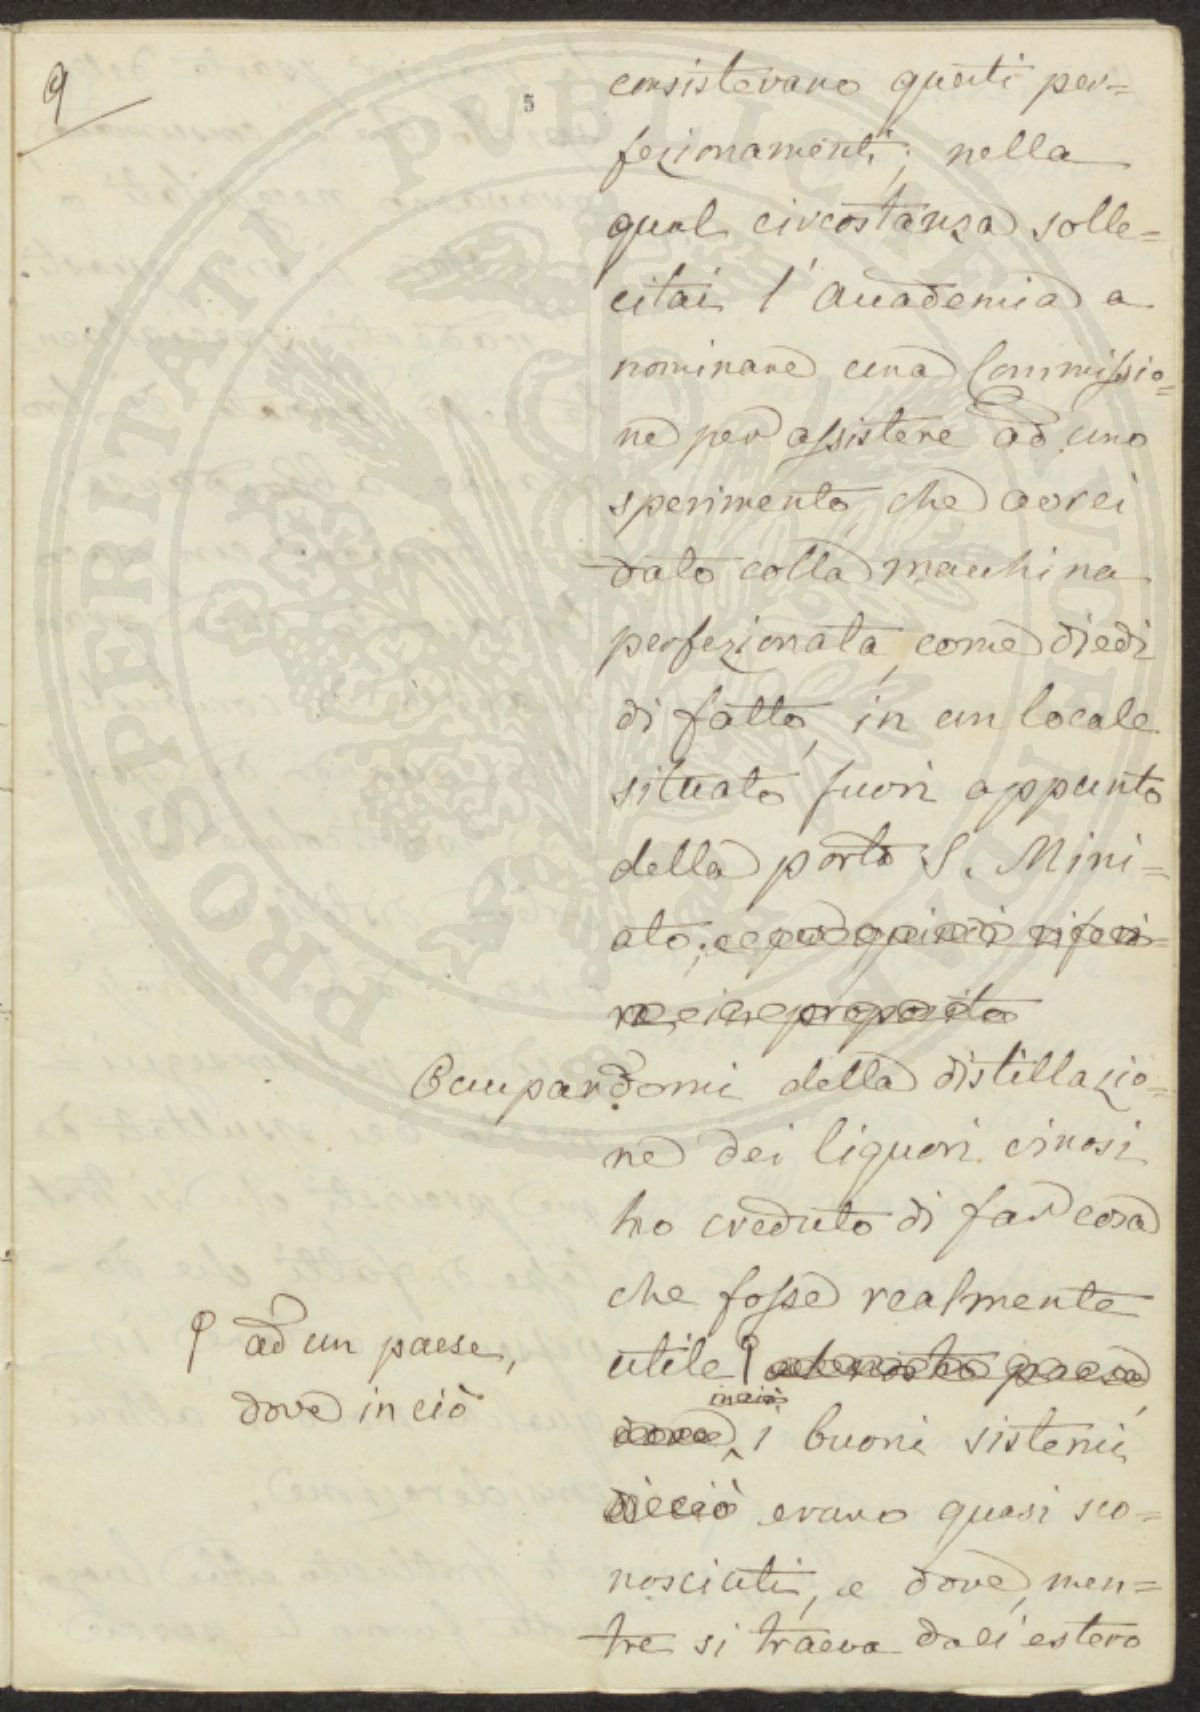 9
5
consistevano questi per=
fezionamenti; nella
qual circostanza solle=
citai l'Accademia a
nominare una Commissio=
ne per assistere ad uno
sperimento, che avrei
dato colla macchina
perfezionata, come diedi
di fatto, in un locale
situato fuori appunto
della porta S. Mini=
ato; e per quindi riferi=
re in proposito
Occupandomi della distillazio=
ne dei liquori vinosi
ho creduto di far cosa
che fosse realmente
utile al nostro paese,
inciò
dove i buoni sistemi
di ciò erano quasi sco=
nosciuti, e dove, men=
tre si traeva dall'estero
ad un paese,
dove in ciò
PROSPERITATI PUBLICAE AUGENDAE